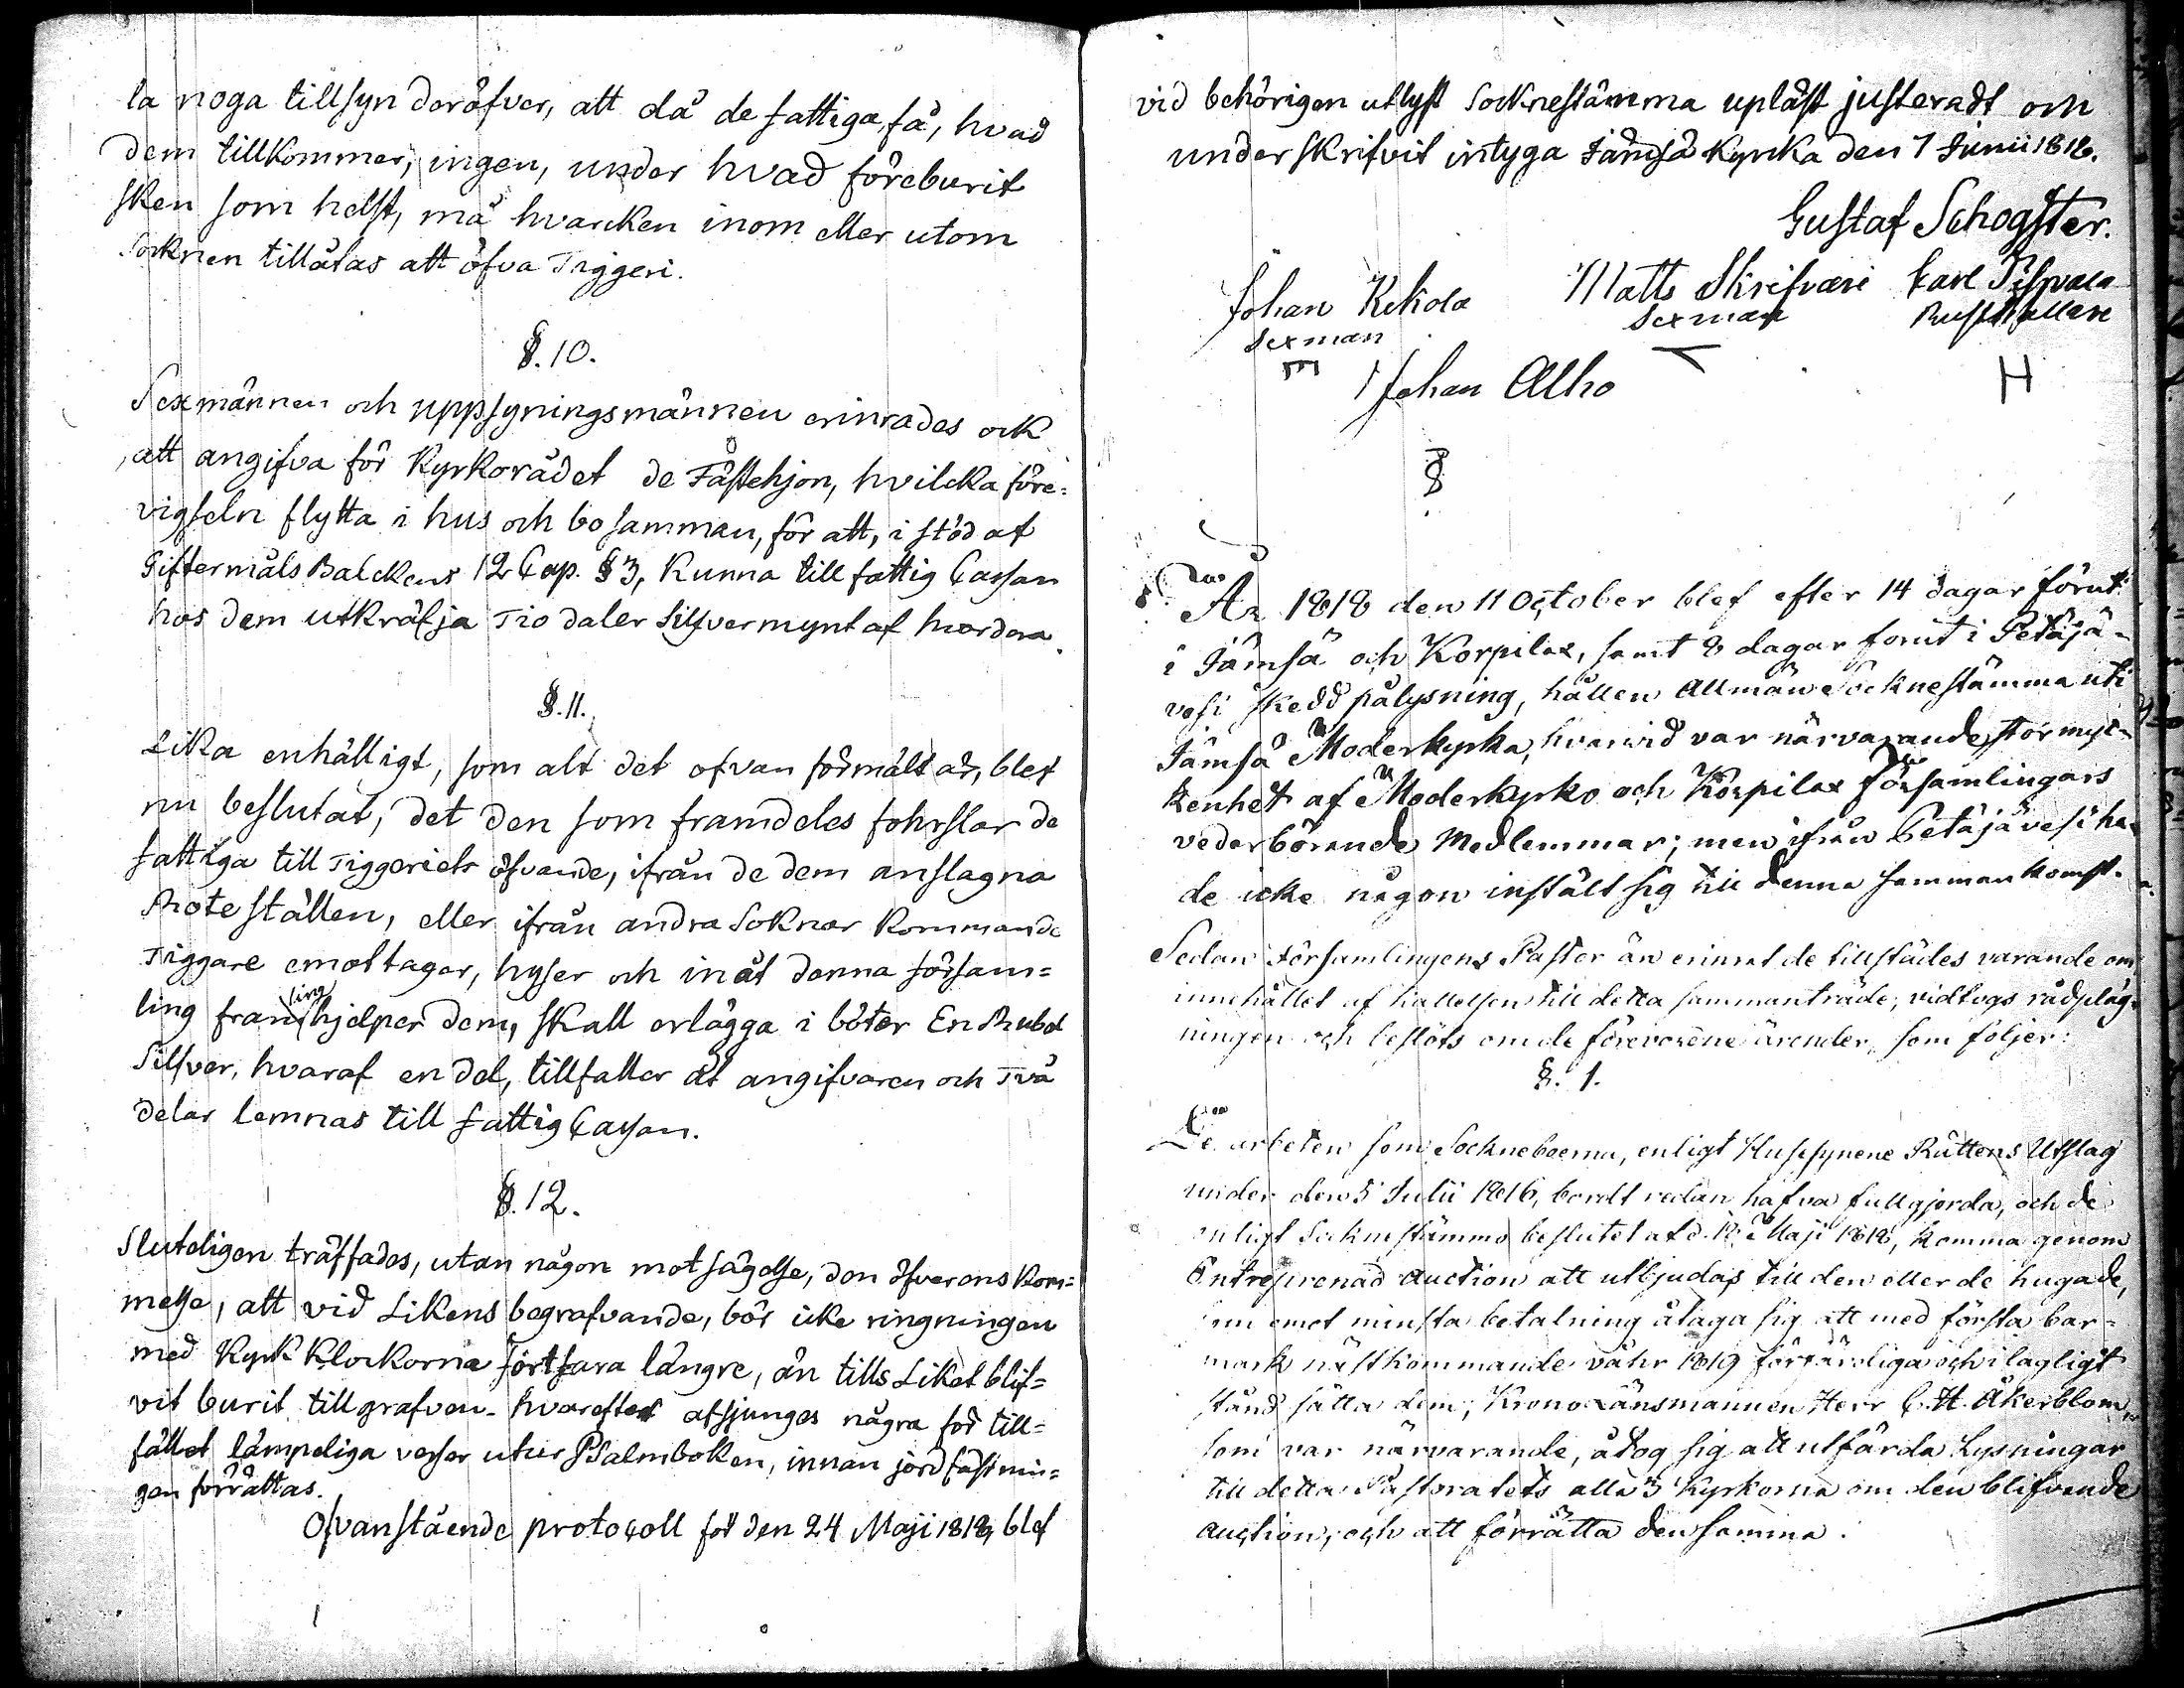 la noga tillsyn deröfver, att då de fattiga få, hvad
dem tillkommer, ingen, under hvad föreburit
sken som helst, må hvarcken inom eller utom
Socknen tillåtas att öfva Tiggeri.
§. 10.
Sexmännen och uppsyningsmännen erinrades ock
att angifva för Kyrkorådet de Fästehjon, hvilcka före=
vigseln flytta i hus och bo samman, för att, i stöd af
Giftermåls Balckens 12 Cap. § 3, kunna till fattig Cassan
hos dem utkräfja Tio daler Silfvermynt af hvardera.
§. 11.
Lika enhälligt, som alt det ofvan förmält är, blef
nu beslutat, det den som framdeles forslar de
fattiga till Tiggeriets öfvande, ifrån de dem anslagna
Roteställen, eller ifrån andra Soknar kommande
Tiggare emottager, hyser och inåt denna församling=
ling framhjelper dem, skall erlägga i böter En Rubel
Silfver, hvaraf en del, tillfaller åt angifvaren och Två
delar lemnas till fattig Cassan.
§. 12.
Sluteligen träffades, utan någon motsägelse, den öfverens kom=
melse, att vid Likens begrafvande, bör icke ringningen
med Kyrk Klockorna fortfara längre, än tills Liket blif=
vit burit till grafven. hvarefter afsjunges några för till=
fället lämpeliga verser utur Psalmboken, innan jordfästnin=
gen förrättas.
Ofvanstående protocoll för den 24 Maji 1818, blef
vid behörigen utlyst Socknestämma upläst justeradt och
underskrifvit intyga Jämsä Kyrka den 7 Junii 1818.
Gustaf Schogster.
Johan Kekola Matts Skrifvari Carl Pispala
Sexman Sexman Rusthållare
Johan Alho H
§
År 1818 den 11 October blef efter 14 dagar förut
i Jämsä och Korpilax, samt 8 dagar forut i Petäjä=
vesi skedd pålysning, hållen Allmän Socknestämma uti
Jämsä Moderkyrka, hvarvid var närvarande stor myc=
kenhet af Moderkyrko och Korpilax församlingars
vederbörande Medlemmar; men ifrån Petäjävesi ha=
de icke någon instält sig till denna sammankomst.
Sedan Församlingens Pastor än erinrat de tillstädes varande om
innehållet af kallelsen till detta sammanträde, vidtogs rådpläg=
ningen och beslöts om de förevarene ärender, som följer:
§. 1.
De arbeten som Sockneboerna, enligt Husesynene Rättens Utslag
under den 5 Julii 1816, bordt redan hafva fullgjorda, och de
enligt Socknestämmo beslutet af d. Maji 1818, komma genom
Entreprenad auction att utbjudas till den eller de hugade,
som emot minsta betalning åtaga sig att med första bar=
mark nästkommande vahr 1819 förfärdiga och i lagligit
stånd sätta dem; Kronolänsmannen Herr C. H. Åkerblom,
som var närvarande, åtog sig att utfärda Lysningar
till detta Pastoratets alla 3 Kyrkorna om den blifvande
auction, och att förrätta densamma.